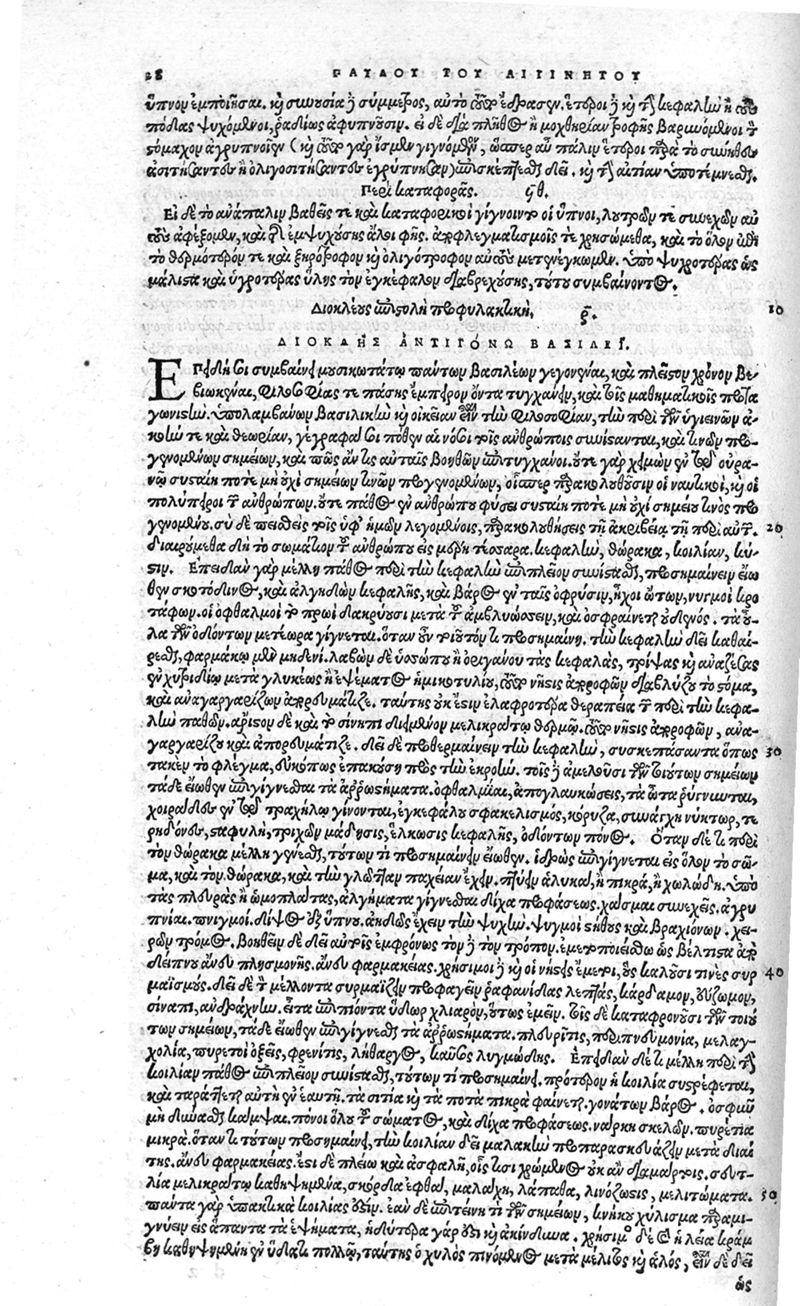 28 ΠΑΥΛΟΥ ΤΟΥ ΑΙΓΙΝΗΤΟΥ
ὕπνον ἐμποιῆσαι. καὶ συνουσία ἡ σύμμετρος, αὐτὸ τοῦτο ἔδρασεν. ἕτεροι δὲ καὶ τὴν κεφαλὴν ἢ τοὺς
πόδας ψυχόμενοι, ῥαδίως ἀφυπνοῦσιν. εἰ δὲ διὰ πλῆθος ἢ μοχθηρίαν τροφῆς βαρυνόμενοι τὸν
στόμαχον ἀγρυπνοῖεν (καὶ τοῦτο γὰρ ἴσμεν γιγνόμενον, ὥσπερ αὖ πάλιν ἕτεροι παρὰ τὸ σύνηθες
ἀσιτήσαντες ἢ ὀλιγοσιτήσαντες ἐγρύπνησαν) ἐπισκέπτεσθαι δεῖ. καὶ τὴν αἰτίαν ὑποτέμνεσθαι.
Περὶ καταφορᾶς. ϟθ.
Εἰ δὲ τὸ ἀνάπαλιν βαθεῖς τε καὶ καταφορικοὶ γίγνοιντο οἱ ὕπνοι, λουτρῶν τε συνεχῶν αὐ
τοὺς ἀφέξομεν, καὶ τῆς ἐμψυχούσης ἀλοιφῆς. ἀποφλεγματισμοῖς τε χρησώμεθα, καὶ τὸ ὅλον ἐπὶ
τὸ θερμότερόν τε καὶ ξηρότροφον καὶ ὀλιγότροφον αὐτοὺς μετενέγκωμεν. ὑπὸ ψυχροτέρας ὡς
μάλιστα καὶ ὑγροτέρας ὕλης τὸν ἐγκέφαλον διαβρεχούσης, τούτου συμβαίνοντος.
Διοκλέους ἐπιστολὴ προφυλακτική. ρ. 10
ΔΙΟΚΛΗΣ ΑΝΤΙΓΟΝΩ ΒΑΣΙΛΕΙ.
Ἐπειδή σοι συμβαίνει μουσικωτάτῳ πάντων βασιλέων γεγονέναι, καὶ πλεῖστον χρόνον βε-
βιωκέναι, φιλοσοφίας τε πάσης ἔμπειρον ὄντα τυγχάνειν, καὶ τοῖς μαθηματικοῖς πρωτα
γωνιστὴν. ὑπολαμβάνων βασιλικὴν καὶ οἰκείαν εἶναι τὴν φιλοσοφίαν, τὴν περὶ τῶν ὑγιεινῶν ἀ-
κοήν τε καὶ θεωρίαν, γέγραφά σοι πόθεν αἱ νόσοι τοῖς ἀνθρώποις συνίστανται, καὶ τίνων προ-
γενομένων σημείων, καὶ πῶς ἄν τις αὐταῖς βοηθῶν ἐπιτυγχάνοι. οὔτε γὰρ χειμὼν ἐν τῷ οὐρα-
νῷ συσταίη ποτὲ μὴ οὐχὶ σημείων τινῶν προγενομένων, οἷσπερ παρακολουθοῦσιν οἱ ναυτικοὶ, καὶ οἱ
πολύπειροι τῶν ἀνθρώπων. οὔτε πάθος ἐν ἀνθρώπου φύσει συσταίη ποτὲ μὴ οὐχὶ σημείου τινὸς προ
γενομένου. σὺ δὲ πεισθεὶς τοῖς ὑφ' ἡμῶν λεγομένοις, παρακολουθήσεις τῇ ἀκριβείᾳ τῇ περὶ αὐτῶν. 20
διαιρούμεθα δὴ τὸ σωμάτιον τοῦ ἀνθρώπου εἰς μέρη τέσσαρα. κεφαλὴν, θώρακα, κοιλίαν, κύ-
στιν. Ἐπειδὰν γὰρ μέλλῃ πάθος περὶ τὴν κεφαλὴν ἐπιπλεῖον συνίστασθαι, προσημαίνειν εἴω
θεν σκοτόδινος, καὶ ἀλγηδὼν κεφαλῆς, καὶ βάρος ἐν ταῖς ὀφρύσιν, ἦχοι ὤτων, νυγμοὶ κρο
τάφων. οἱ ὀφθαλμοὶ τὸ πρωὶ δακρύουσι μετὰ τοῦ ἀμβλυώσσειν, καὶ ὀσφραίνεται οὐδενός. τὰ οὖ-
λα τῶν ὀδόντων μετέωρα γίγνεται. ὅταν οὖν τοιοῦτόν τι προσημαίνῃ. τὴν κεφαλὴν δεῖ καθαί-
ρεσθαι, φαρμάκῳ μὲν μηδενί. λαβὼν δὲ ὑσσώπου ἢ ὀριγάνου τὰς κεφαλὰς, τρίψας καὶ ἀναζέσας
ἐν χυτριδίῳ μετὰ γλυκέως ἢ ἑψήματος ἡμικοτυλίου, τοῦτο νῆστις ἀπορροφῶν διαβλύζου τὸ στόμα,
καὶ ἀναγαργαρίζων ἀπορρευμάτιζε. ταύτης οὐκ ἔστιν ἐλαφροτέρα θεραπεία τῶν περὶ τὴν κεφα-
λὴν παθῶν. ἄριστον δὲ καὶ τὸ σίνηπι διειμένον μελικράτῳ θερμῷ. τοῦτο νῆστις ἀπορροφῶν, ἀνα-
γαργαρίζου καὶ ἀπορρευμάτιζε. δεῖ δὲ προθερμαίνειν τὴν κεφαλὴν, συσκεπάσαντα ὅπως 30
τακῇ τὸ φλέγμα, εὐκόπως ἐπακούσῃ πρὸς τὴν ἐκροήν. τοῖς δὲ ἀμελοῦσι τῶν τοιούτων σημείων
τάδε εἴωθεν ἐπιγίγνεσθαι τὰ ἀῤῥωστήματα. ὀφθαλμίαι, ἀπογλαυκώσεις, τὰ ὦτα ῥύγνυνται,
χοιράδες ἐν τῷ τραχήλῳ γίνονται, ἐγκεφάλου σφακελισμὸς, κόρυζα, συνάγχη νύκτωρ, τε
ρηδόνες, σταφυλὴ, τριχῶν μάδησις, ἕλκωσις κεφαλῆς, ὀδόντων πόνος. Ὅταν δέ τι περὶ
τὸν θώρακα μέλλῃ γενέσθαι, τούτων τι προσημαίνειν εἴωθεν. ἱδρὼς ἐπιγίγνεται εἰς ὅλον τὸ σῶ-
μα, καὶ τὸν θώρακα, καὶ τὴν γλῶτταν παχεῖαν ἔχειν. πτύειν ἁλυκὰ, ἢ πικρὰ, ἢ χολώδη. ὑπὸ
τὰς πλευρὰς ἢ ὠμοπλάτας, ἀλγήματα γίγνεσθαι δίχα προφάσεως. χάσμαι συνεχεῖς. ἀγρυ
πνίαι. πνιγμοί. δίψος ἐξ ὕπνου. ἀηδῶς ἔχειν τὴν ψυχήν. ψυγμοὶ στήθους καὶ βραχιόνων. χει-
ρῶν τρόμος. βοηθεῖν δὲ δεῖ αὐτοῖς ἐμφρόνως τόνδε τὸν τρόπον. ἐμετοποιείσθω ὡς βέλτιστα ἀπὸ
δείπνου ἄνευ πλησμονῆς. ἄνευ φαρμακείας. χρήσιμοι δὲ καὶ οἱ νήστεις ἔμετοι, οὓς καλοῦσί τινες συρ 40
μαϊσμούς. δεῖ δὲ τὸν μέλλοντα συρμαΐζειν προφαγεῖν ῥαφανίδας λεπτὰς, κάρδαμον, εὔζωμον,
σίναπι, ἀνδράχνην. εἶτα ἐπιπιόντα ὕδωρ χλιαρὸν, οὕτως ἐμεῖν. τοῖς δὲ καταφρονοῦσι τῶν τοιού
των σημείων, τάδε εἴωθεν ἐπιγίγνεσθαι τὰ ἀῤῥωστήματα. πλευρῖτις, περιπνευμονία, μελαγ-
χολία, πυρετοὶ ὀξεῖς, φρενῖτις, λήθαργος, καῦσος λυγμώδης. Ἐπειδὰν δέ τι μέλλῃ περὶ τὴν
κοιλίαν πάθος ἐπιπλεῖον συνίστασθαι, τούτων τι προσημαίνει. πρότερον ἡ κοιλία συστρέφεται,
καὶ ταράττεται αὐτὴ ἐν ἑαυτῇ. τὰ σιτία καὶ τὰ ποτὰ πικρὰ φαίνεται. γονάτων βάρος. ὀσφῦν
μὴ δύνασθαι κάμψαι. πόνοι ὅλου τοῦ σώματος, καὶ δίχα προφάσεως. νάρκη σκελῶν. πυρέτια
μικρά. ὅταν τι τούτων προσημαίνῃ, τὴν κοιλίαν δεῖ μαλακὴν προπαρασκευάζειν μετὰ διαί
της. ἄνευ φαρμακείας. ἔστι δὲ πλείω καὶ ἀσφαλῆ, οἷς τισι χρώμενος οὐκ ἂν διαμάρτοις. σευτ-
λία μελικράτῳ καθηψημένα, σκόρδα ἑφθὰ, μαλάχη, λάπαθα, λινόζωστις, μελιτώματα. 50
πάντα γὰρ ὑπακτικὰ κοιλίας ἐστίν. ἐὰν δὲ ἐπιτείνῃ τι τῶν σημείων, κνήκου χύλισμα παραμι-
γνύειν εἰς ἅπαντα τὰ ἑψήματα, ἡδύτερα γάρ ἐστι καὶ ἀκίνδυνα. χρήσιμος δέ ἐστι ἡ λεία κράμ
βη καθηψημένη ἐν ὕδατι πολλῷ, ταύτης ὁ χυλὸς πινόμενος μετὰ μέλιτος καὶ ἁλός, εἶναι δὲ δεῖ
ὡς